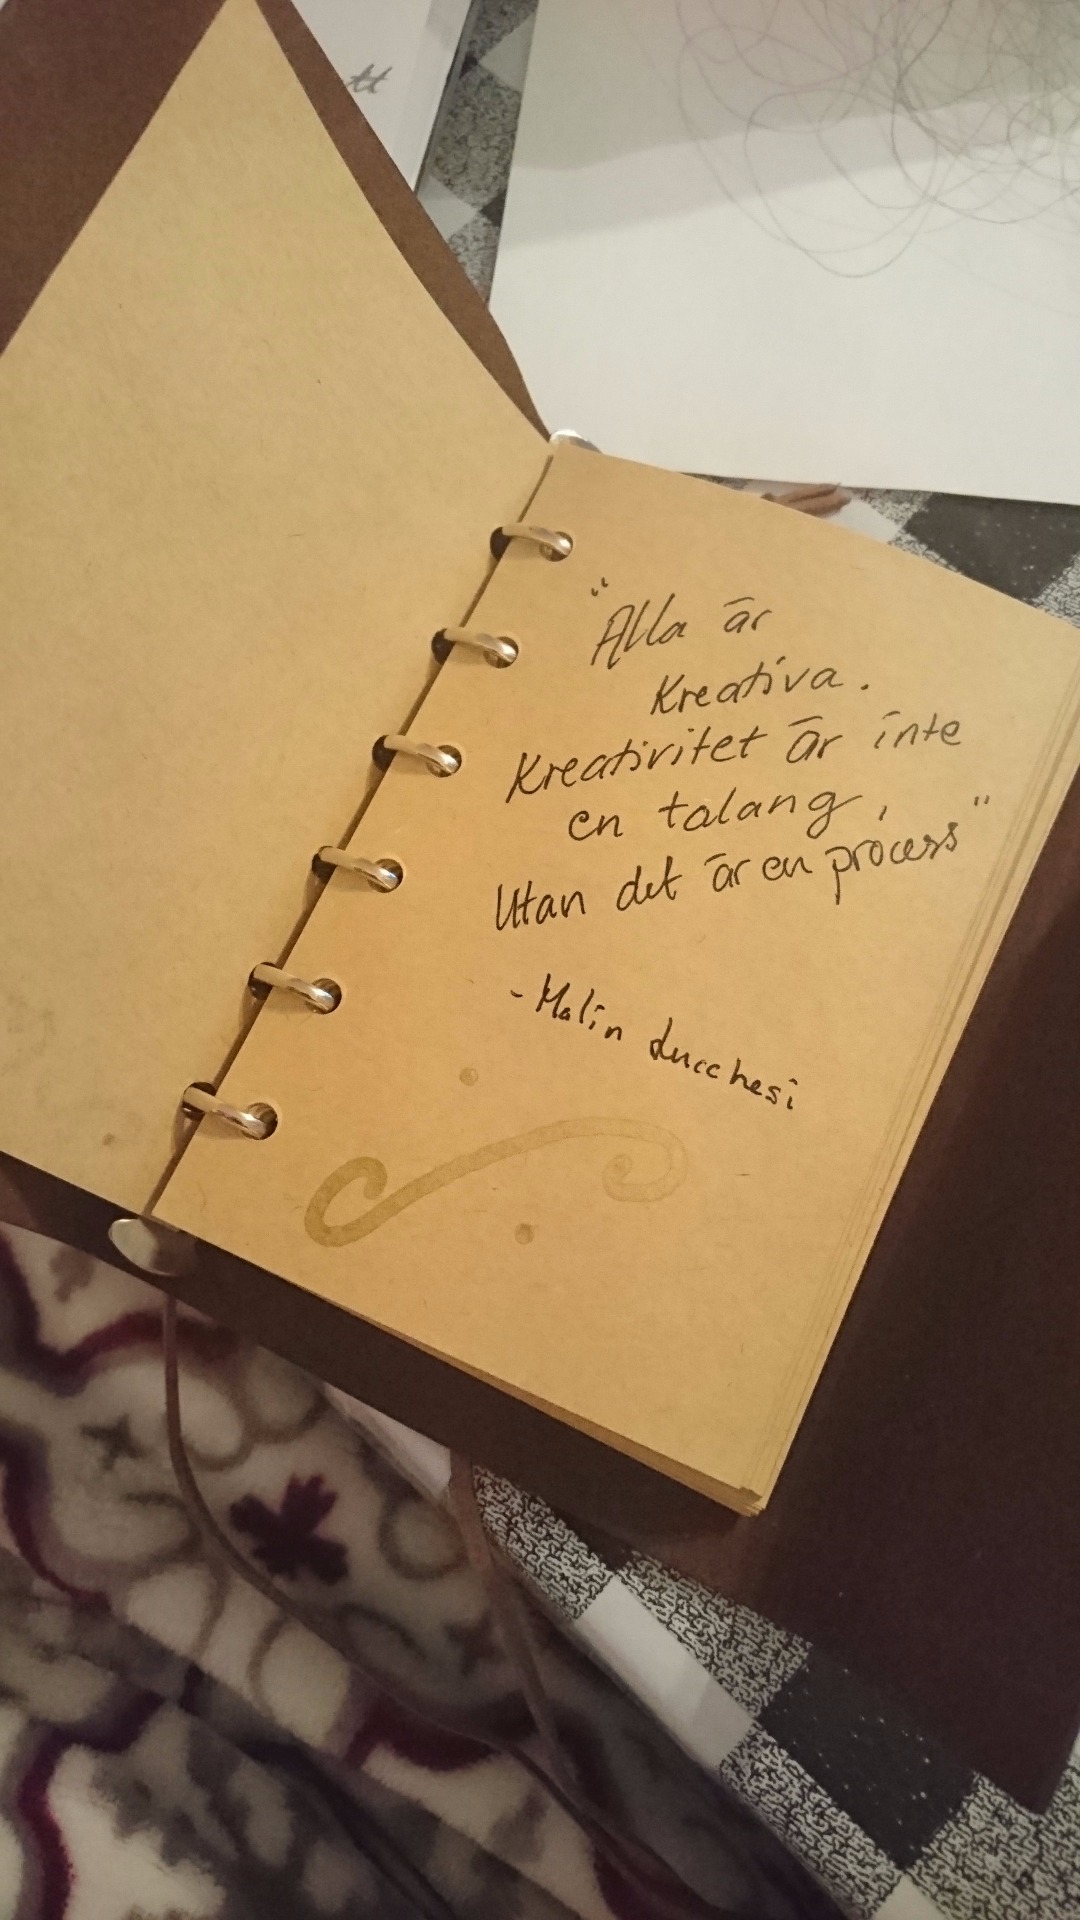 "Alla är
Kreativa.
Kreativitet är inte
en talang,
Utan det är en process"
- Malin Lucchesi